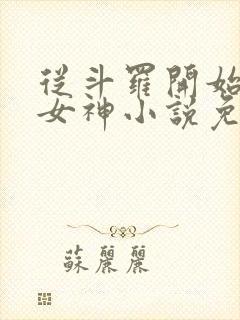 從斗羅開始
女神小說免
蘇麗麗